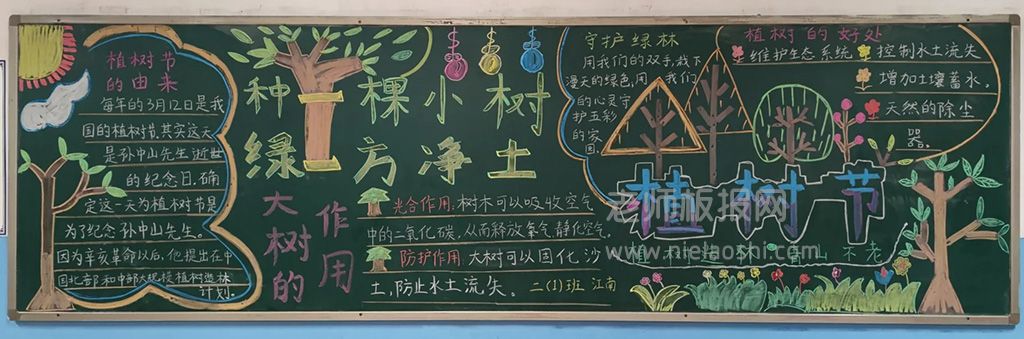 植树节
的由来
每年的3月12日是我
国的植树节,其实这天
是孙中山先生逝世
的纪念日,确
定这一天为植树节是
为了纪念孙中山先生。
因为辛亥革命以后,他提出在中
国北部和中部大规模植树造林
计划。
种一棵小树
绿一方净土
大树的
作用
光合作用:树木可以吸收空气
中的二氧化碳,从而释放氧气,静化空气。
防护作用:大树可以固化沙
土,防止水土流失。 二(1)班 江南
守护绿林
用我们的双手,栽下
漫天的绿色,用我们
的心灵守
护五彩
的家
园
植树的好处
维护生态系统
控制水土流失
增加土壤蓄水。
天然的除尘
器。
植树节
不老
老师板报网
www.nielaoshi.com